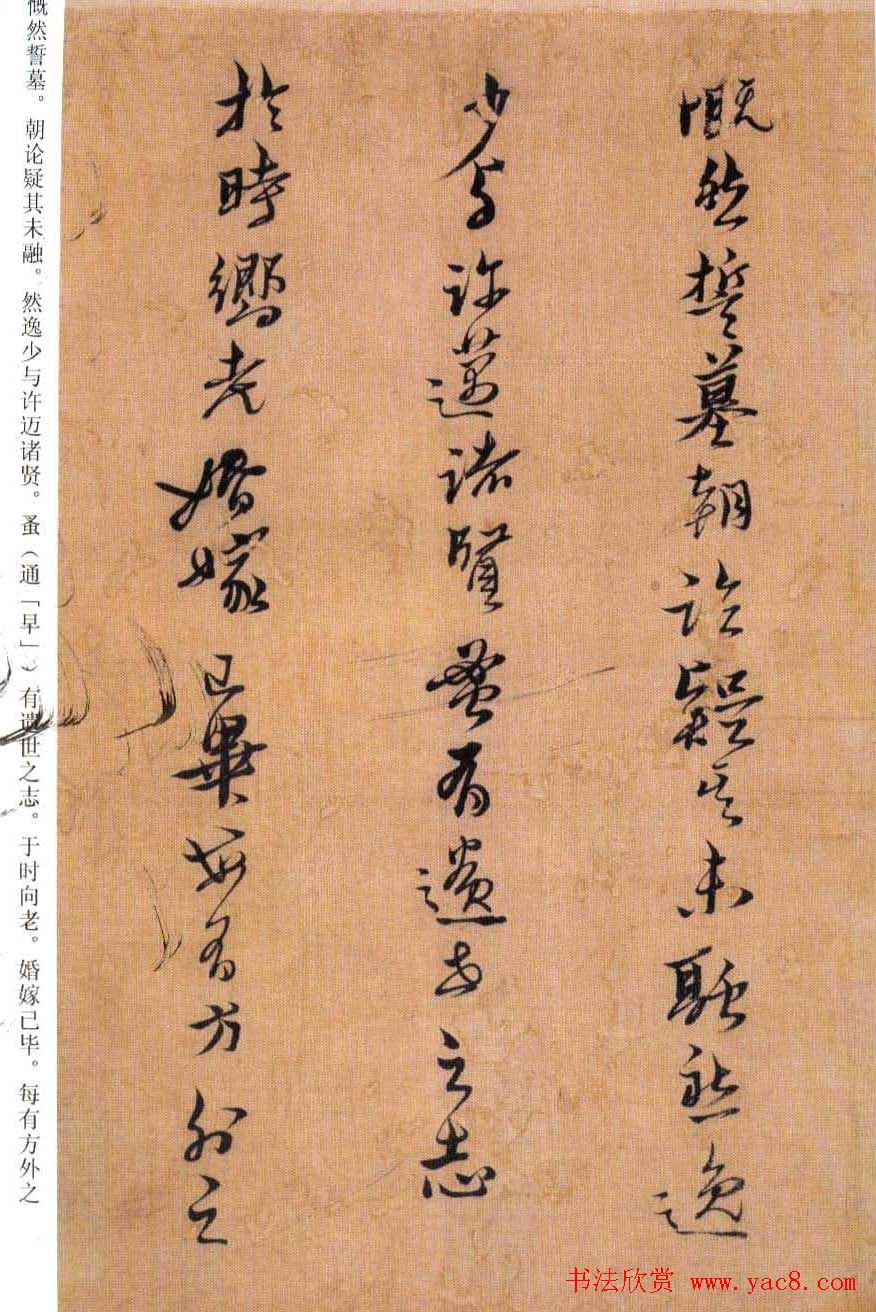 慨然誓墓朝论疑其未融然逸
少与许迈诸贤蚤有遗世之志
於時嚮老婚嫁已畢每有方外之
慨然誓墓。朝论疑其未融。然逸少与许迈诸贤。蚤（通「早」）有遗世之志。于时向老。婚嫁已毕。每有方外之
书法欣赏 www.yac8.com